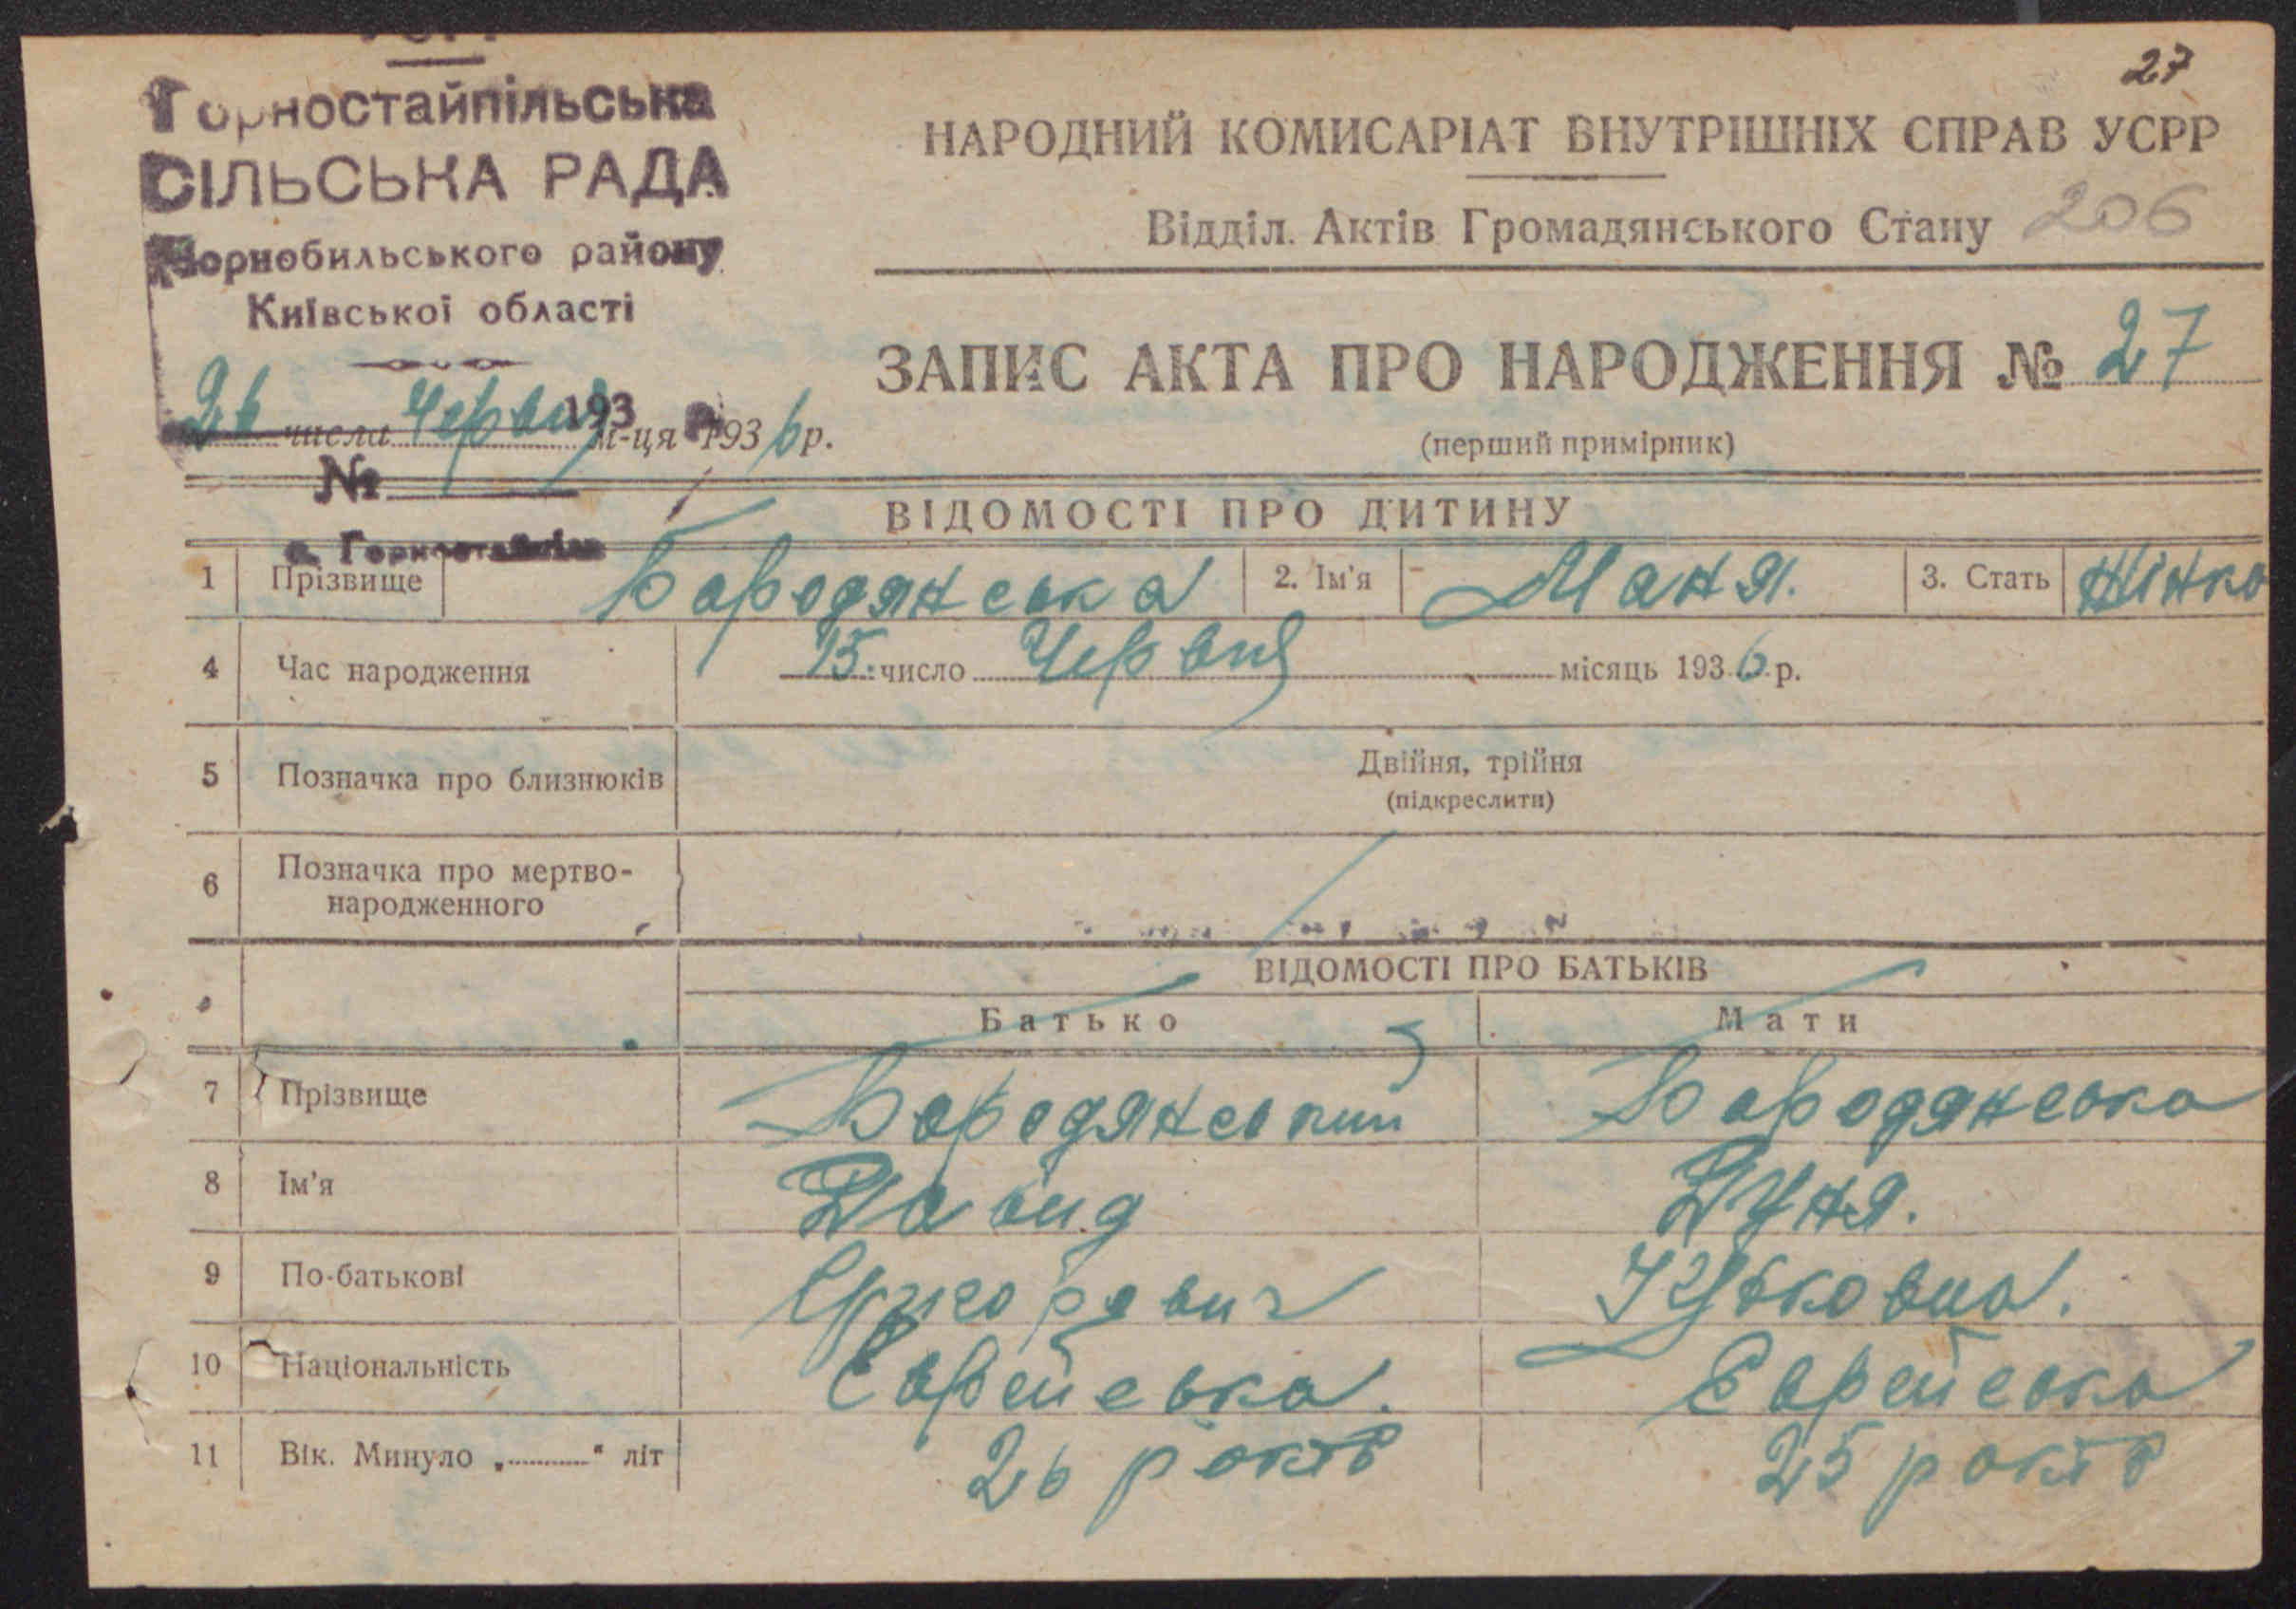 27
Горностайпільська
СІЛЬСЬКА РАДА
Чорнобильського району
Київської області
193
26 числа Червня м-ця 1936 р.
№
с. Горностайпіль
НАРОДНИЙ КОМИСАРІАТ ВНУТРІШНІХ СПРАВ УСРР
Відділ Актів Громадянського Стану 206
ЗАПИС АКТА ПРО НАРОДЖЕННЯ № 27
(перший примірник)
ВІДОМОСТІ ПРО ДИТИНУ
1 Прізвище Бародянська 2. Ім'я Маня. 3. Стать Жінко
4 Час народження 15. число Червня місяць 1936 р.
5 Позначка про близнюків Двійня, трійня
(підкреслити)
6 Позначка про мертво-
народженного
ВІДОМОСТІ ПРО БАТЬКІВ
Батько Мати
7 Прізвище Бародянський Бародянська
8 Ім'я Давид Дуня.
9 По-батькові Григорович
10 Національність Єврейська. Єврейська
11 Вік. Минуло „ “ літ 26 років 25 років